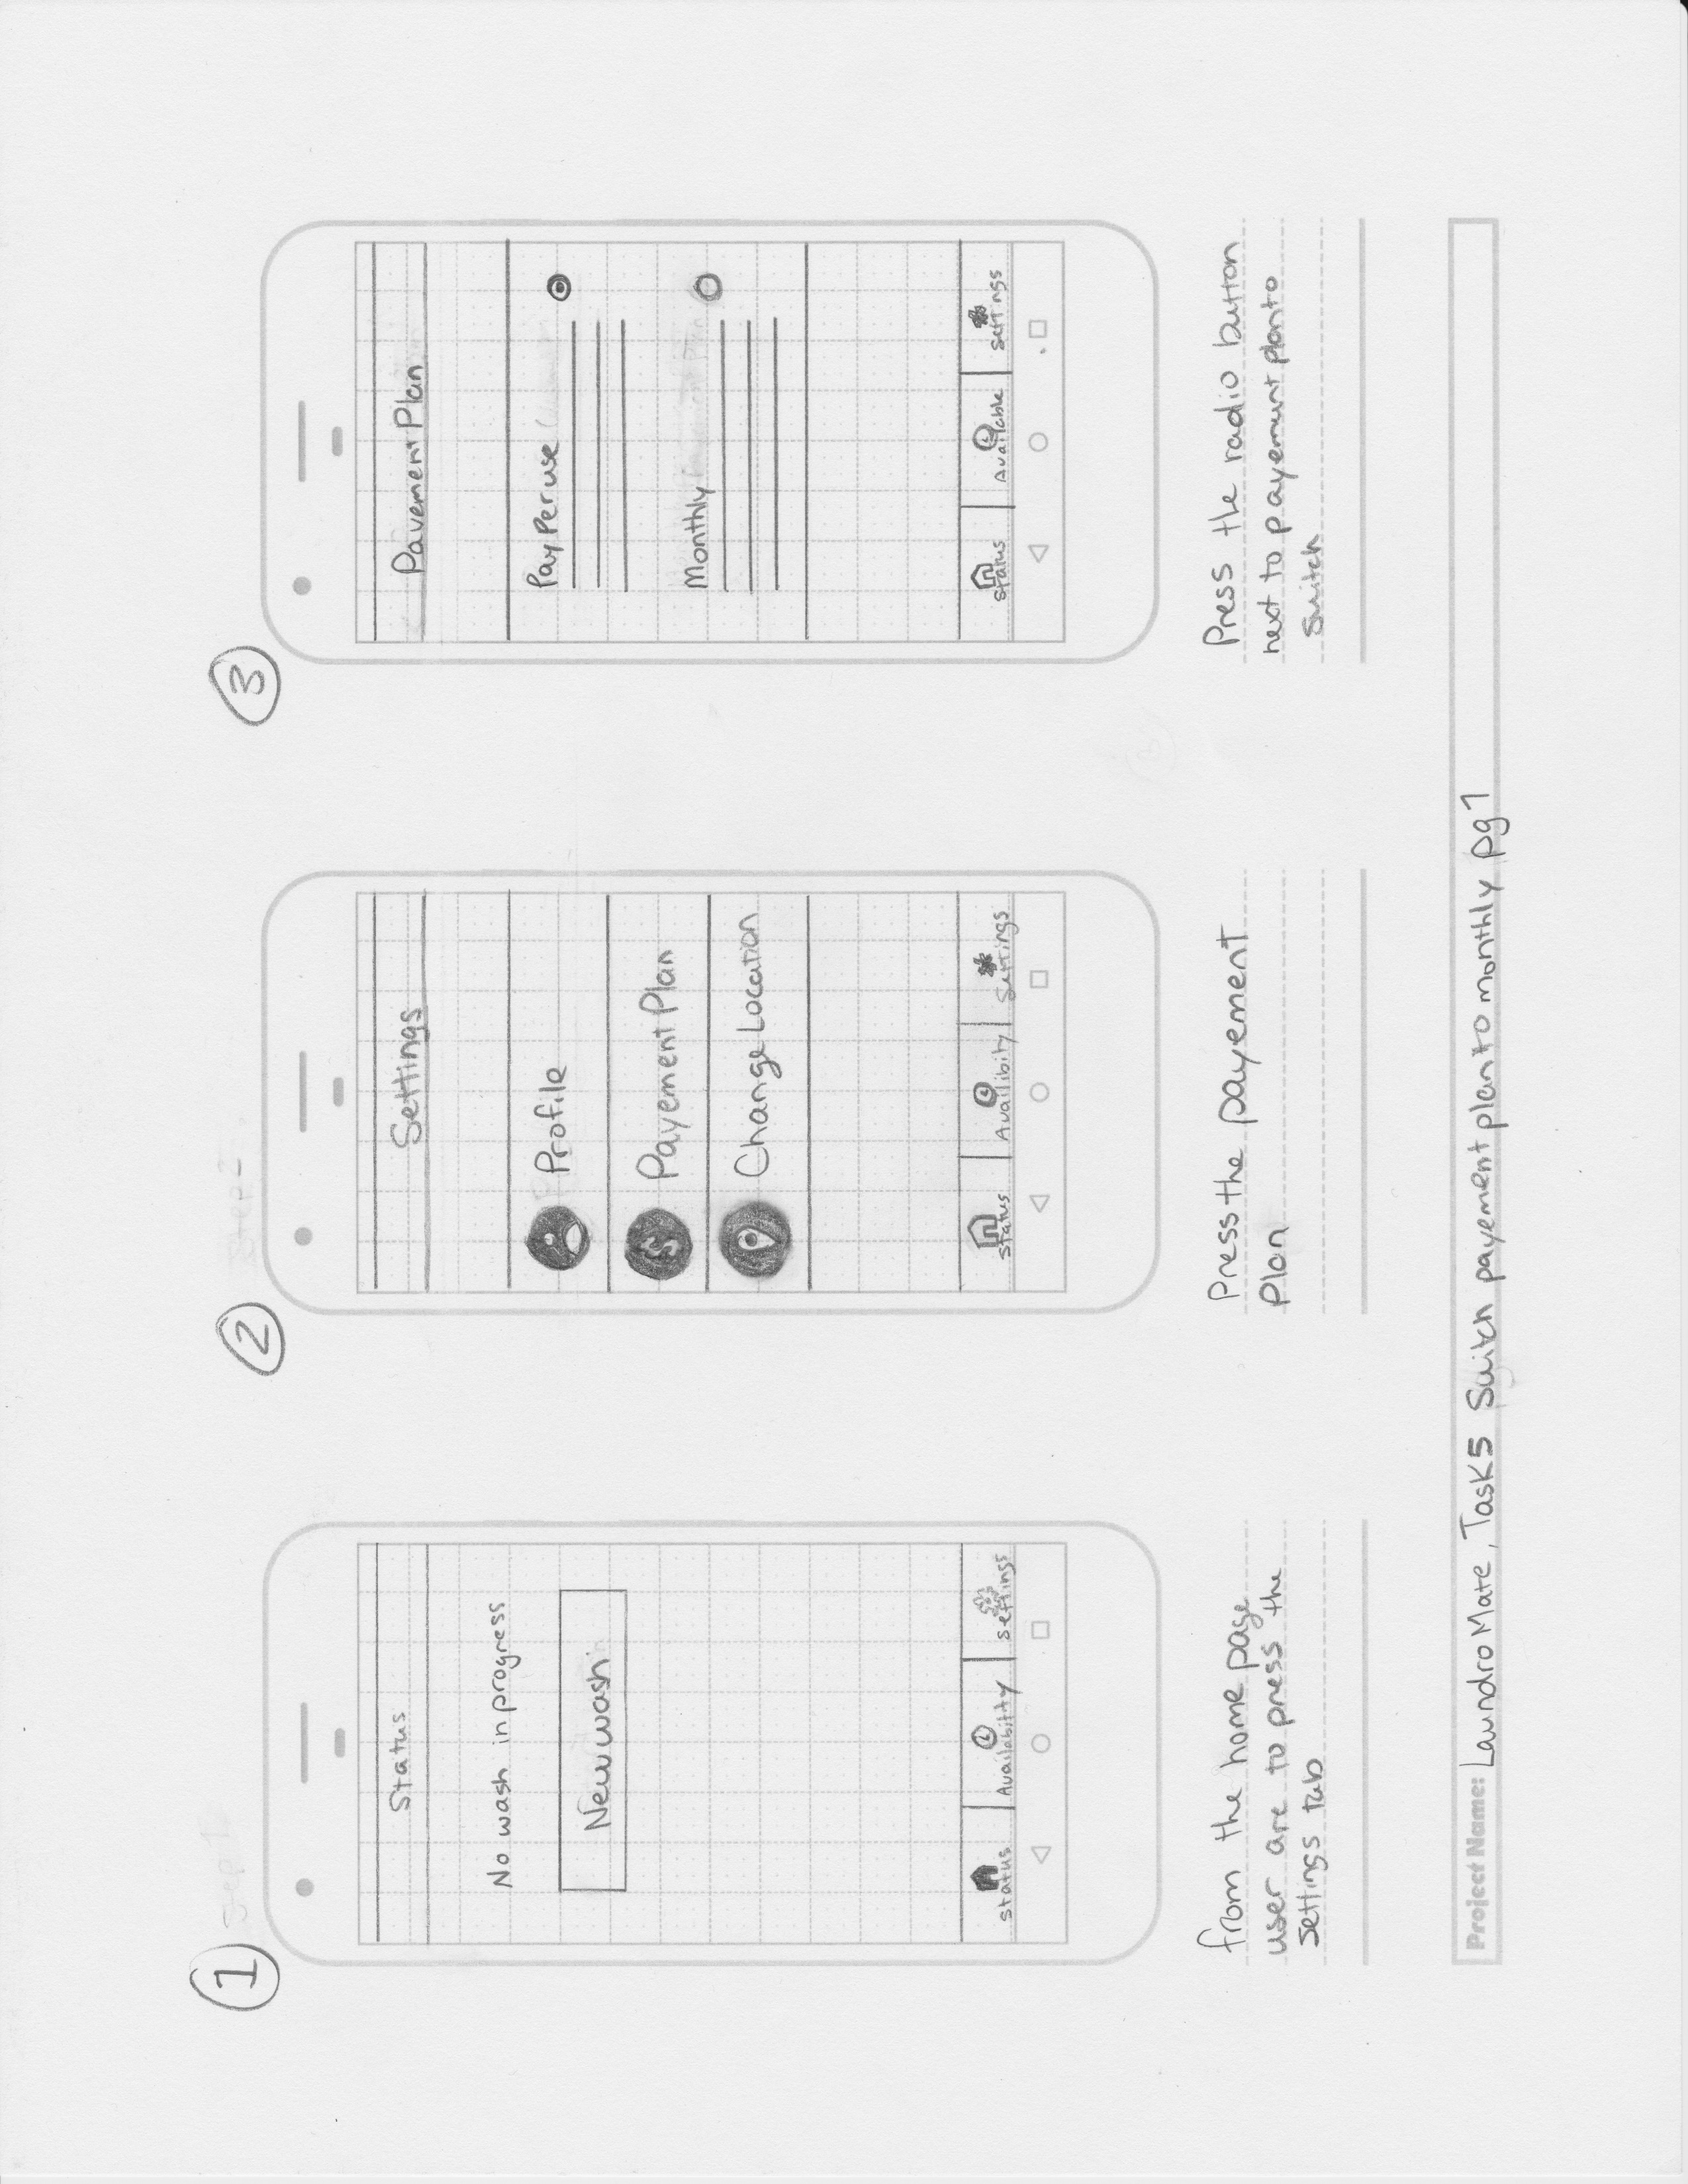 1
Status
No wash in progress
New wash
Status Availability Settings
from the home page
user are to press the
settings tab
2
Settings
Profile
Payement Plan
Change Location
Status Availibity Settings
Press the payement
Plan
3
Payement Plan
Pay Per use
Monthly
Status Available Settings
Press the radio button
next to payement plan to
switch
Project Name: LaundroMate, Task 5 Switch payement plan to monthly pg 1